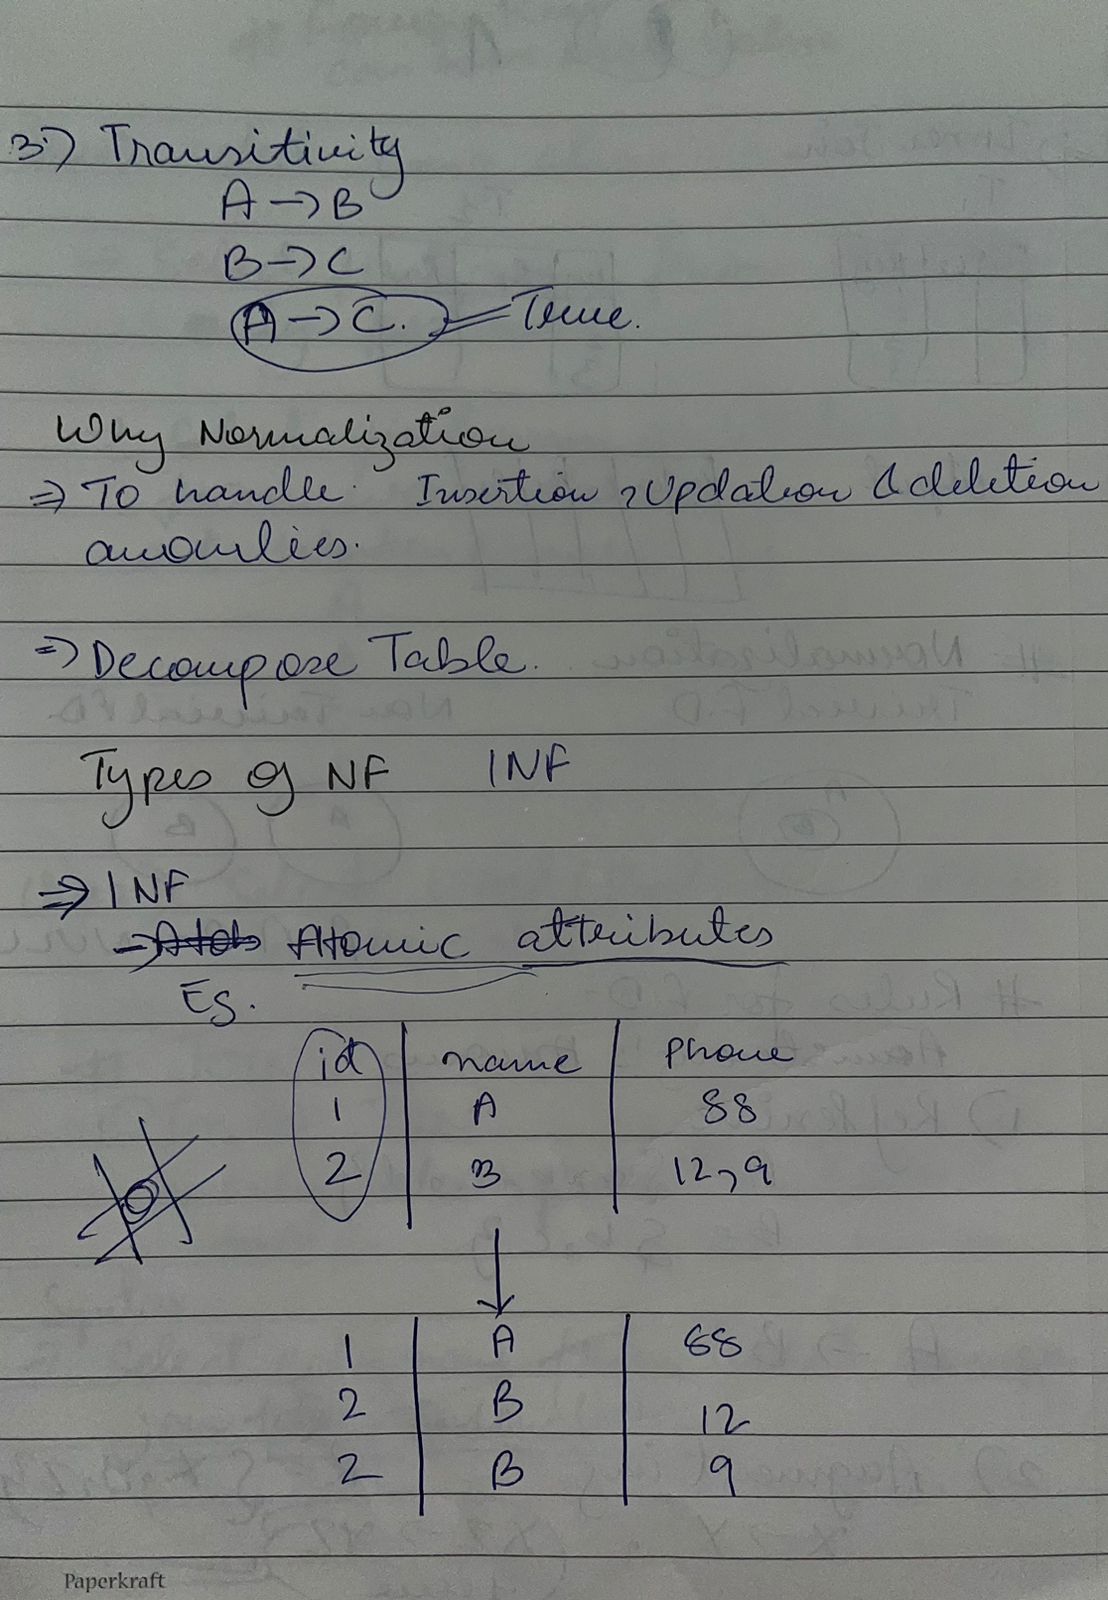 3.) Transitivity
A → B
B → C
A → C. = True.
Why Normalization
⇒ To handle Insertion, Updation & deletion
anomlies.
⇒ Decompose Table.
Types of NF 1NF
⇒ 1NF
→ Atomic attributes
Eg.
id name phone
1 A 88
2 B 12,9
↓
1 A 88
2 B 12
2 B 9
Paperkraft